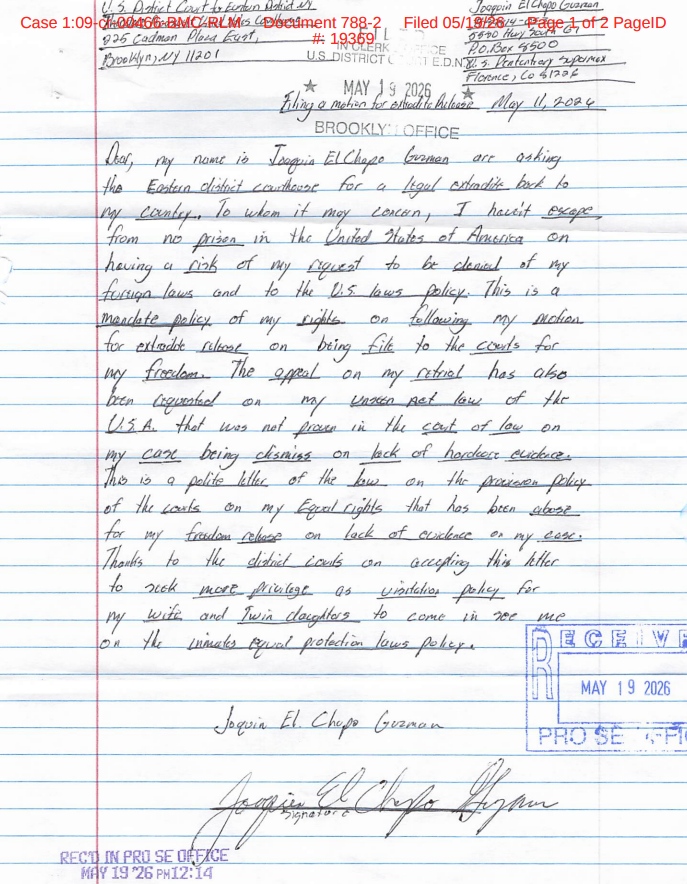 Case 1:09-cr-00466-BMC-RLM Document 788-2 Filed 05/19/26 Page 1 of 2 PageID
#: 19369
U.S. District Court to Eastern District NY
225 Cadman Plaza East,
Brooklyn, NY 11201
Joaquin El Chapo Guzman
P.O. Box 8500
U.S. Penitentiary Supermax
Florence, Co 81226
IN CLERK OFFICE
U.S. DISTRICT COURT E.D.N.Y.
★ MAY 19 2026 ★
BROOKLYN OFFICE
Filing a motion for extradite Release May 11, 2026
Dear, my name is Joaquin El Chapo Guzman are asking
the Eastern district courthouse for a legal extradite back to
my country. To whom it may concern, I havin't escape
from no prison in the United States of America on
having a risk of my request to be denied of my
foreign laws and to the U.S laws policy. This is a
mandate policy of my rights on following my motion
for extradite release on being file to the courts for
my freedom. The appeal on my retrial has also
been requested on my unseen Act law of the
U.S.A. that was not proven in the court of law on
my case being dismiss on lack of hardcore evidence.
This is a polite letter of the law on the provision policy
of the courts on my Equal rights that has been abuse
for my freedom release on lack of evidence on my case.
Thanks to the district courts on accepting this letter
to seek more privilege as visitation policy for
my wife and Twin daughters to come in see me
on the inmates Equal protection laws policy.
RECEIVE
MAY 19 2026
PRO SE OFFIC
Joquin El. Chapo Guzman
Joaquin El Chapo Guzman
Signature
REC'D IN PRO SE OFFICE
MAY 19 '26 PM12:14